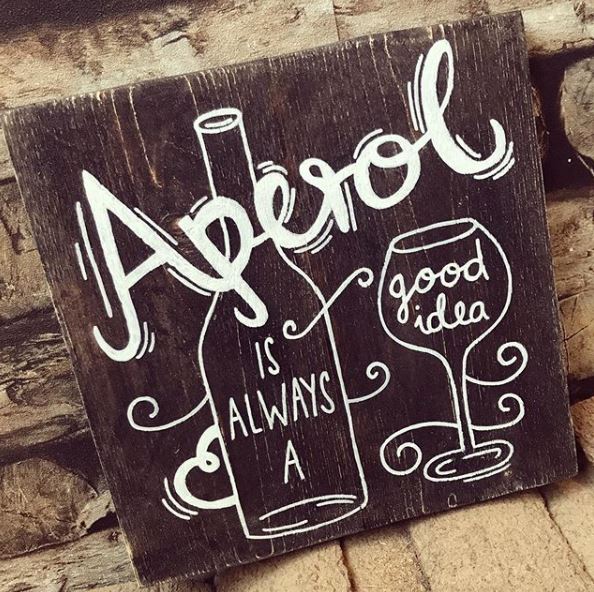 Aperol
IS
ALWAYS
A
good
idea